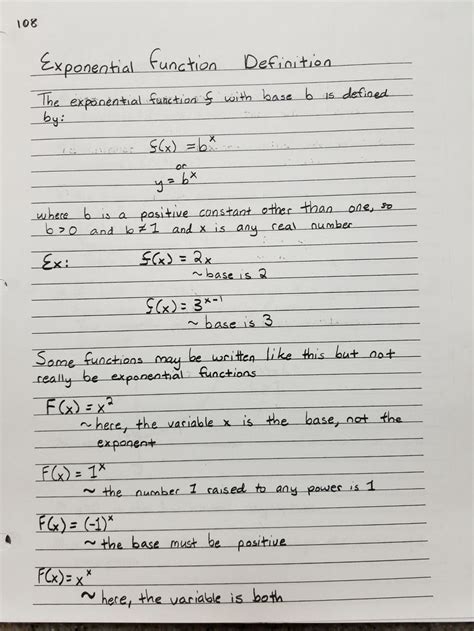 108
Exponential Function Definition
The exponential function f with base b is defined
by:
f(x) = bˣ
or
y = bˣ
where b is a positive constant other than one, so
b > 0 and b ≠ 1 and x is any real number
Ex: f(x) = 2x
~ base is 2
f(x) = 3ˣ⁻¹
~ base is 3
Some functions may be written like this but not
really be exponential functions
F(x) = x²
~ here, the variable x is the base, not the
exponent
F(x) = 1ˣ
~ the number 1 raised to any power is 1
F(x) = (-1)ˣ
~ the base must be positive
F(x) = xˣ
~ here, the variable is both